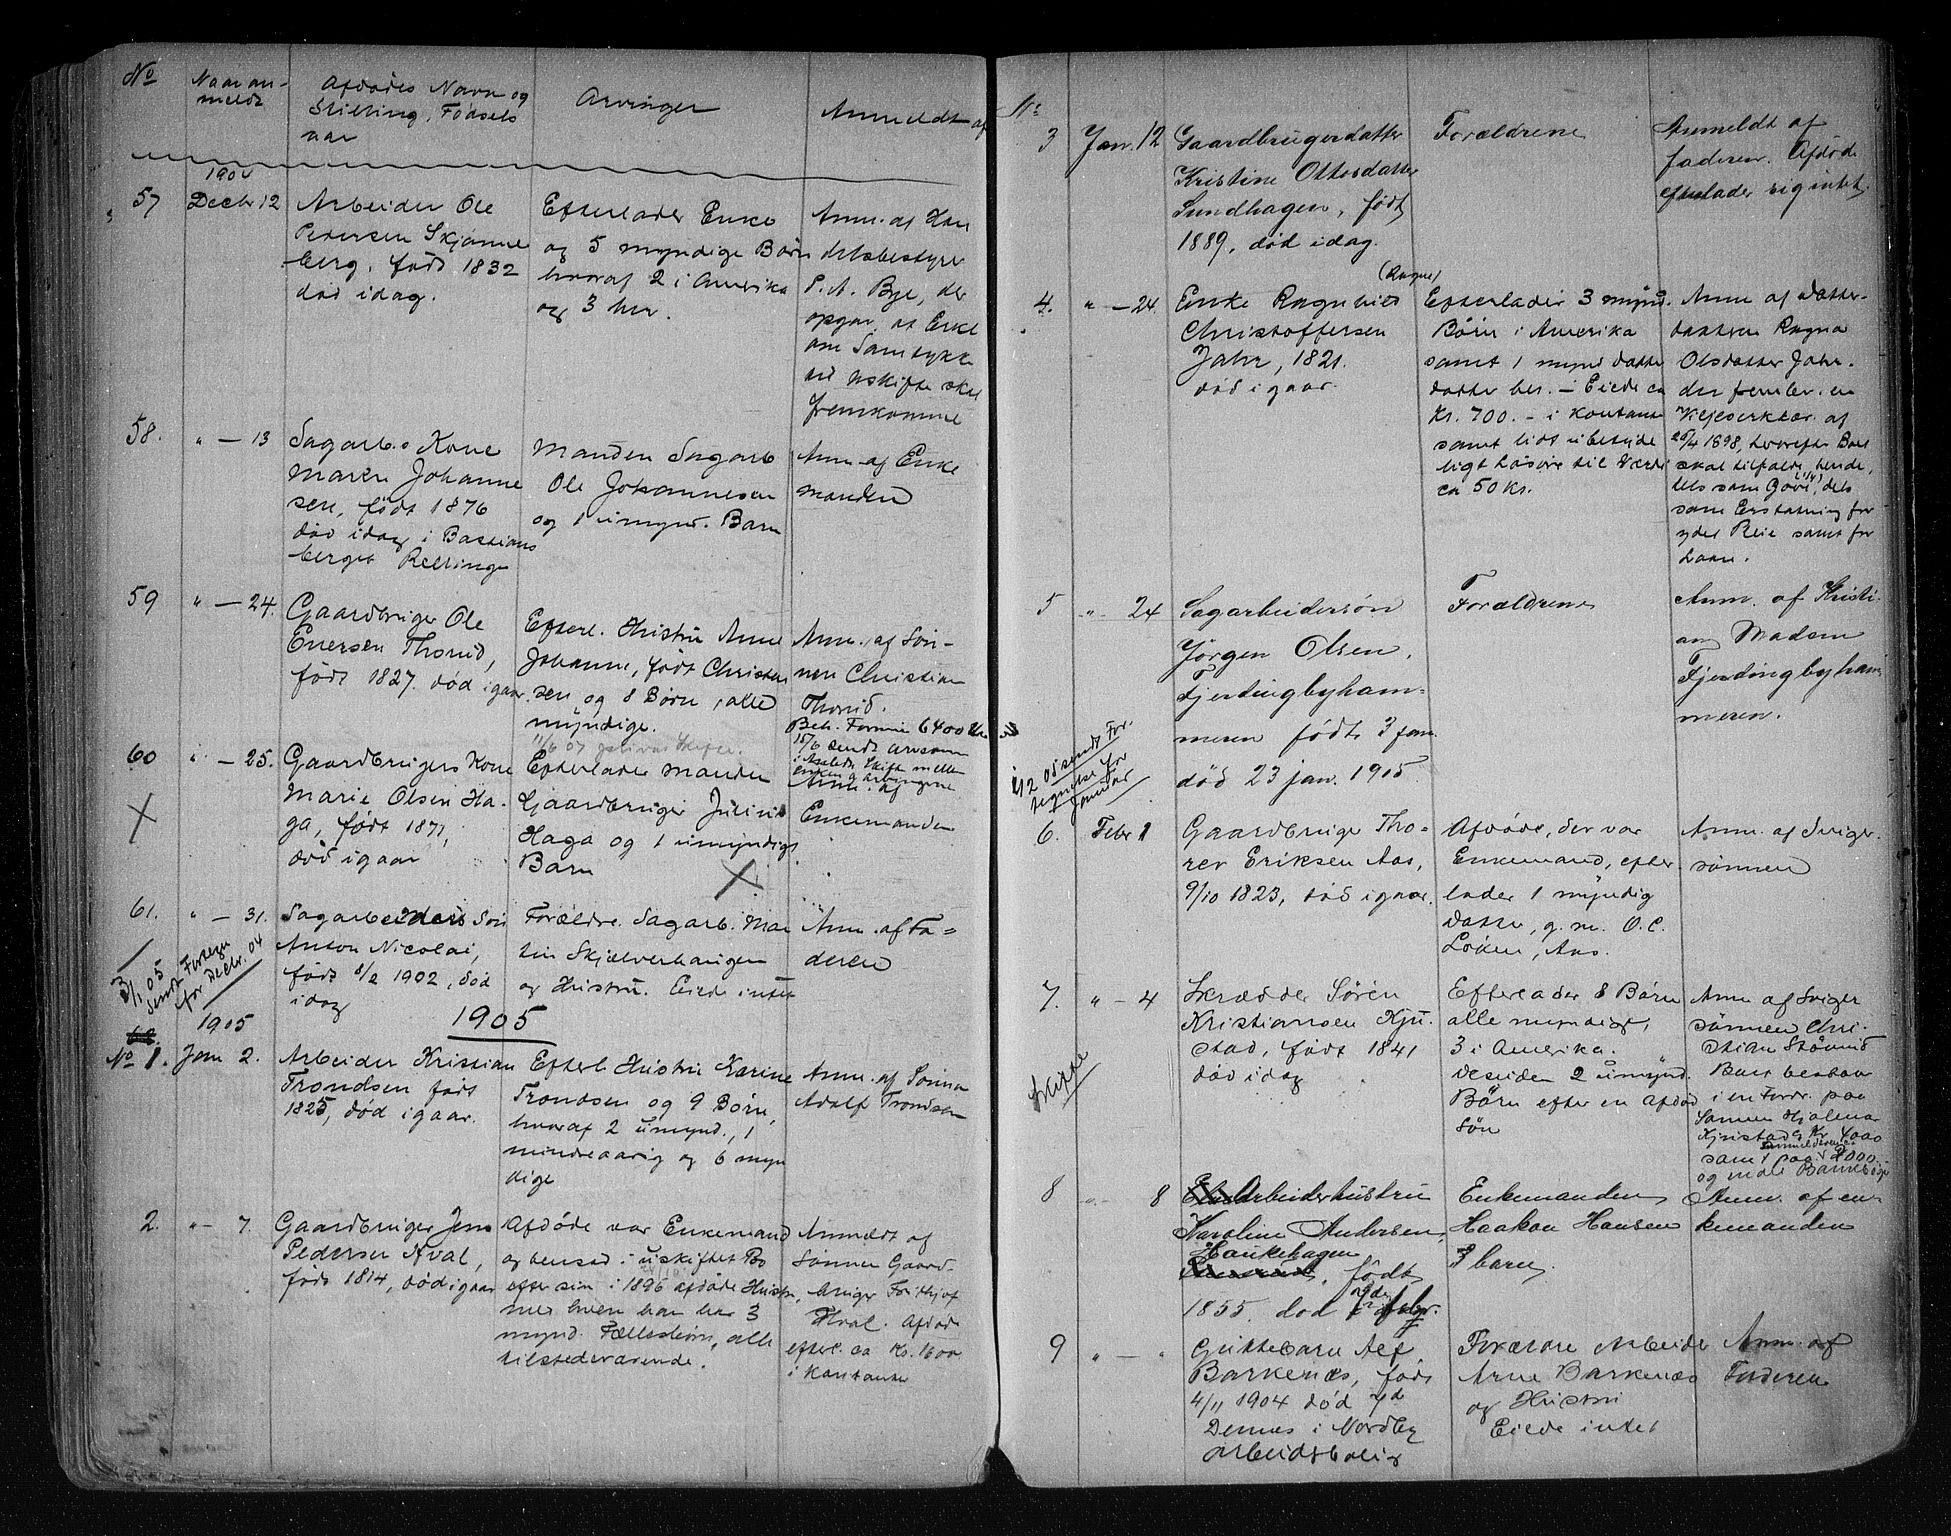 No
Naar an-
meldt
Afdødes Navn og
Stilling, Fødsels
aar
Arvinger
Anmeldt af
1904
57
Decbr 12
Arbeider Ole
Pedersen Skjønne
berg, født 1832
død idag.
Efterlader Enke
og 5 myndige Børn
hvoraf 2 i Amerika
og 3 her.
Anm. af Han
delsbestyrer
P. A. Bye, der
opgav, at Enke
ns Samtykke
til Uskifte skal
fremkomme
58.
" — 13
Sagarb.s Kone
Maren Johanne
sen, født 1876
død idag i Bastians
berget Rellinge
Manden Sagarb
Ole Johannesen
og 1 umynd. Barn
Anm. af Enke
manden
59
" — 24.
Gaardbruger Ole
Evensen Thorud,
født 1827. død igaar
Efterl. Hustru Anne
Johanne, født Christen
sen og 8 Børn, alle
myndige.
Anm. af Søn-
nen Christian
Thorud.
Beh. Formue 6400 Kr
60
" — 25.
Gaardbrugers Kone
Marie Olsen Ha-
ga, født 1877,
død igaar
Efterlader Manden
Gaardbruger Julius
Haga og 1 umyndigt
Barn
Anm. af
Enkemanden
61.
" — 31.
Sagarbeiders Søn
Anton Nicolai,
født 8/2 1902, død
idag
Forældre. Sagarb. Mar
tin Skjælverhaugen
og Hustru. Eiede intet
Anm. af Fa-
deren
3/1 05
sendt Fortegn
for Decbr. 04
1905
1905
No 1.
Jan 2.
Arbeider Kristian
Trondsen født
1825, død igaar.
Efterl Hustru Karine
Trondsen og 9 Børn,
hvoraf 2 umynd., 1
mindreaarig og 6 myn
dige
Anm. af Sønnen
Adolf Trondsen
2.
" - 7.
Gaardbruger Jens
Pedersen Hval,
født 1814, død igaar
Afdøde var Enkemand
og hensad i uskiftet Bo
efter sin i 1896 afdøde Hustru,
med hvem han har 3
mynd. Fællesbørn, alle
tilstedeværende.
Anmeldt af
Sønnen Gaard-
bruger Fridtjof
Hval. Afdøde
efterl. ca Kr. 1600
i Kontanter
No
3
Jan. 12
Gaardbrugerdatter
Kristine Ottosdatter
Sundhagen, født
1889, død idag.
Forældrene
Anmeldt af
faderen. Afdøde
efterlader sig intet.
4.
" — 24.
(Ragne)
Enke Ragnhild
Christoffersen
Jahr, 1821.
død igaar.
Efterlader 3 mynd.
Børn i Amerika
samt 1 mynd datter
datter her. — Eiede ca
Kr. 700. - i Kontanter
samt lidt ubetyde
ligt Løsøre til Værdi
ca 50 Kr.
Anm af Datter-
datteren Ragna
Olsdatter Jahr.
der fremlev. en
Veljeserklær. af
26/4 1898, hvorefter Boet
skal tilfalde hende,
dels som Gave (1/4), dels
som Erstatning for
ydet Pleie samt for
Laan.
5
" 24
Sagarbeidersøn
Jørgen Olsen.
Fjerdingbyham-
meren født 3 jan.
død 23 jan. 1905.
Forældrene
Anm. af Kristi-
an Madsen
Fjerdingbyham
meren.
1/2 05 sendt For-
tegnelse for
Januar
6.
Febr 1
Gaardbruger Tho-
rer Eriksen Aas,
9/10 1823, død igaar.
Afdøde, der var
Enkemand, efter
lader 1 myndig
Datter, g. m. O. C.
Løken, Aas.
Anm. af Sviger
sønnen
7.
" - 4
Skrædder Søren
Kristiansen Kju-
stad, født 1841
død idag
Efterlader 8 Børn
alle myndige,
3 i Amerika.
desuden 2 umynd.
Børn efter en afdød
Søn
Anm af Sviger
sønnen Chri-
stian Støvind
Boet bestaar
i en Fordr. paa
Sønnen Hjalmar
Kjustad Kr 4000
samt paa Anmelderen 2000
og endel Bankindsk.
Skifte
8
" 8
Arbeiderhustru
Karoline Andersen,
Haukehagen
født
1855. død 7de febr.
Enkemanden
Haakon Hansen
3 børn.
Anm. af en-
kemanden
9
" — "
Guttebarn Alf
Barkenæs, født
4/11 1904 død 7d
Dennes i Nordby
arbeidsbolig
Forældre Arbeider
Arne Barkenæs
og Hustru
Eiede intet
Anm. af
Faderen